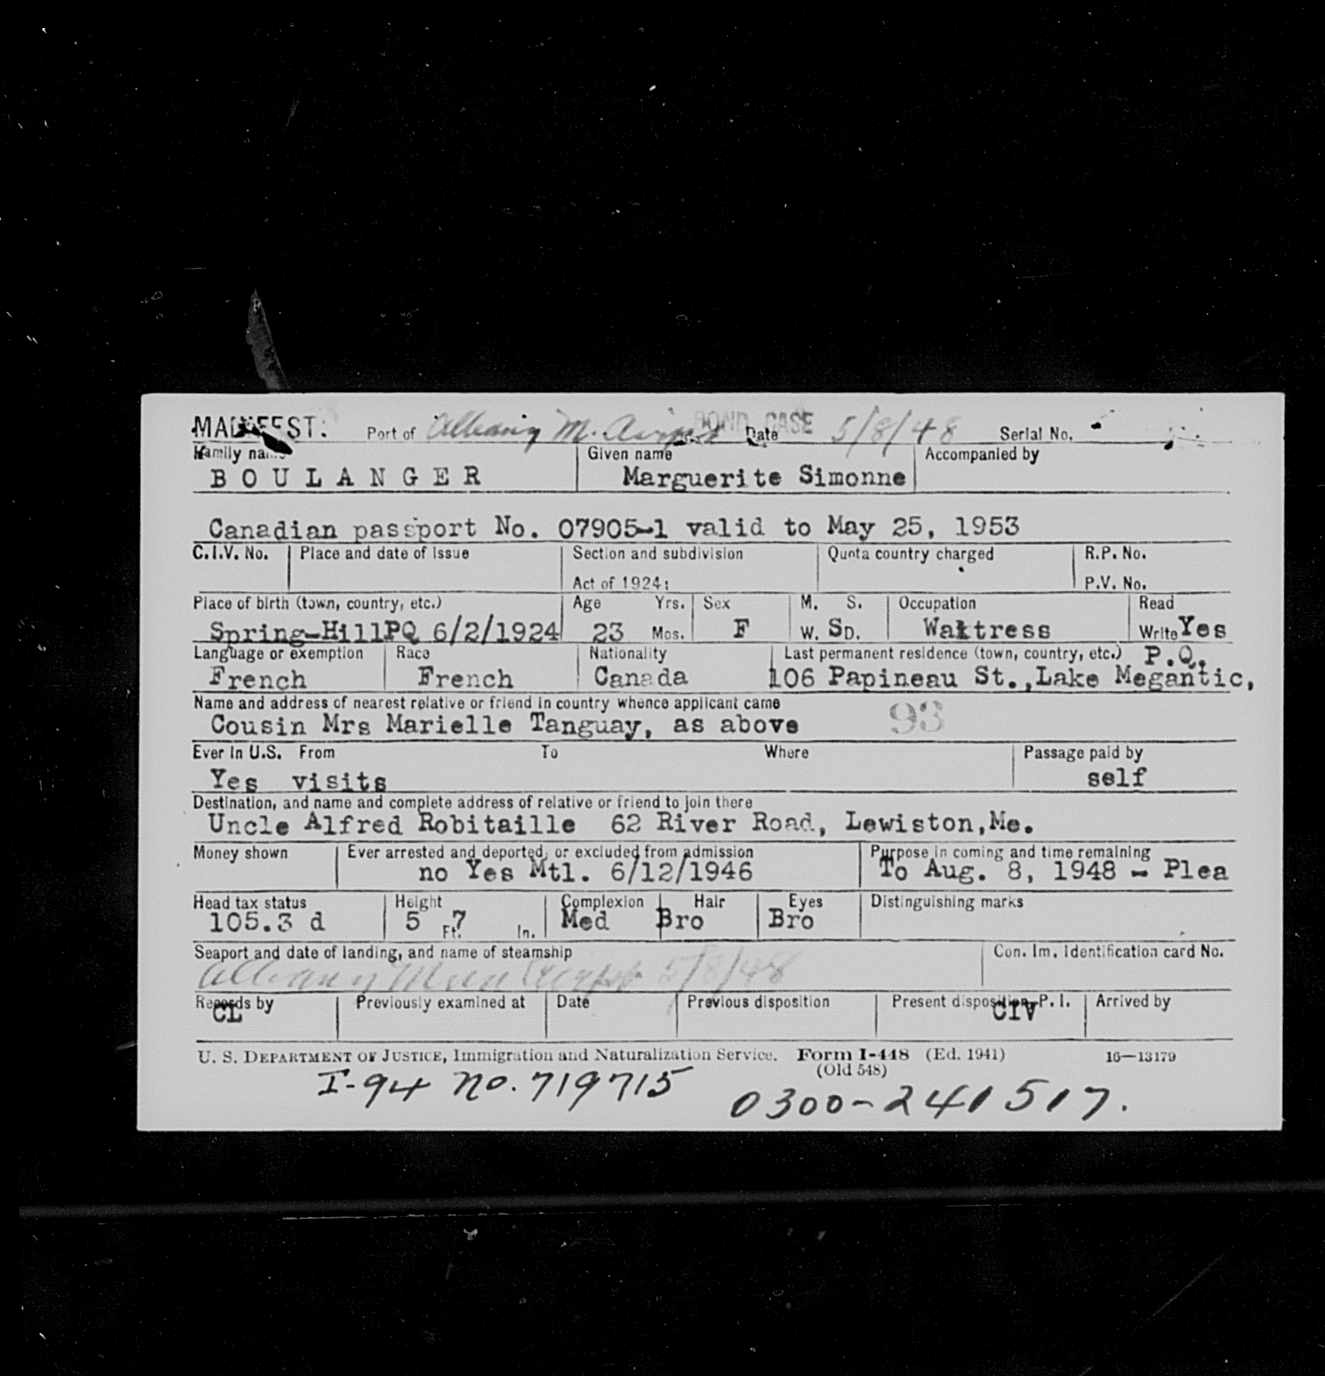 MANIFEST: Port of Albany M. Airport BOND CASE Date 5/8/48 Serial No.
Family name Given name Accompanied by
BOULANGER Marguerite Simonne
Canadian passport No. 07905-1 valid to May 25, 1953
C.I.V. No. Place and date of issue Section and subdivision Quota country charged R.P. No.
Act of 1924: P.V. No.
Place of birth (town, country, etc.) Age Yrs. Sex M. S. Occupation Read
Spring-HillPQ 6/2/1924 23 Mos. F W. SD. Waitress Write Yes
Language or exemption Race Nationality Last permanent residence (town, country, etc.) P.Q.
French French Canada 106 Papineau St.,Lake Megantic,
Name and address of nearest relative or friend in country whence applicant came
Cousin Mrs Marielle Tanguay, as above 93
Ever in U.S. From To Where Passage paid by
Yes visits self
Destination, and name and complete address of relative or friend to join there
Uncle Alfred Robitaille 62 River Road, Lewiston,Me.
Money shown Ever arrested and deported, or excluded from admission Purpose in coming and time remaining
no Yes Mtl. 6/12/1946 To Aug. 8, 1948 - Plea
Head tax status Height Complexion Hair Eyes Distinguishing marks
105.3 d 5 Ft. 7 In. Med Bro Bro
Seaport and date of landing, and name of steamship Con. Im. Identification card No.
Albany Mun Airport 5/8/48
Records by Previously examined at Date Previous disposition Present disposition P. I. Arrived by
CL CIV
U. S. DEPARTMENT OF JUSTICE, Immigration and Naturalization Service. Form I-448 (Ed. 1941) 16—13179
(Old 548)
I-94 No. 719715
0300-241517.